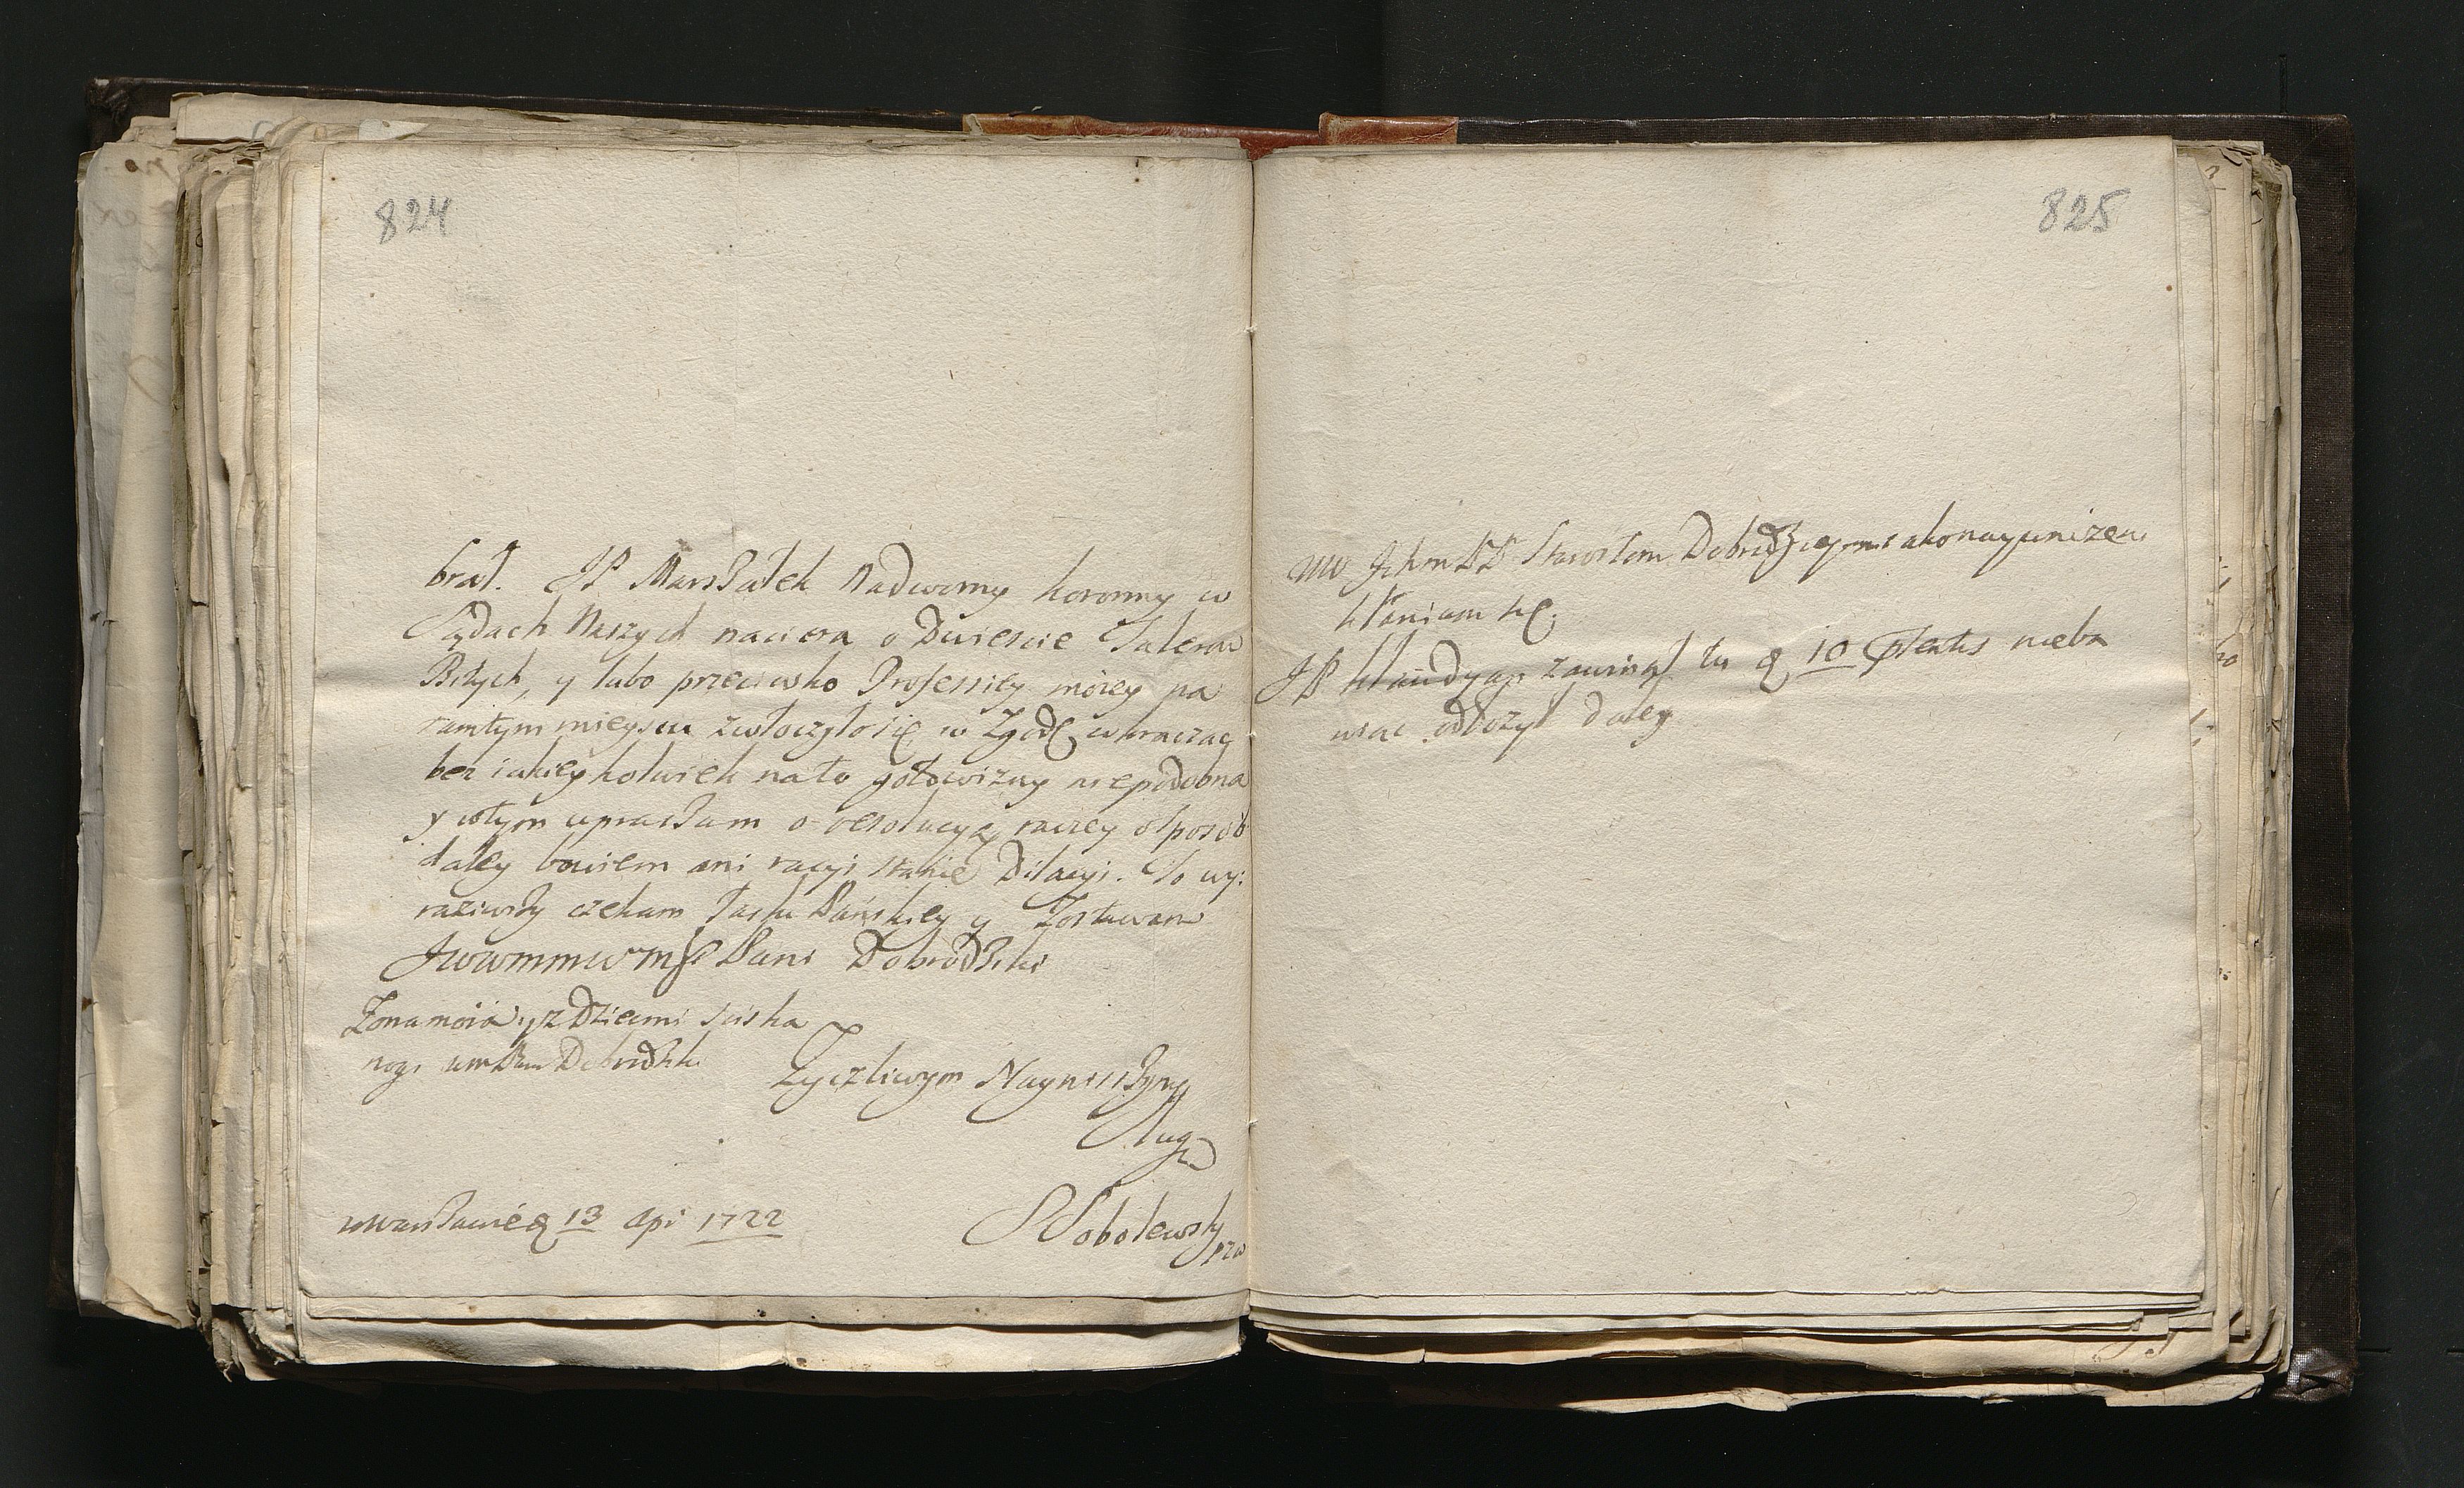 824
brał. JP Marszałek Nadworny koronny w
Sądach Naszych naciera o Dwiescie Talerow
Bitych, y lubo przeciwko Professiey moiey na
tamtym mieyscu zwłoczyło się w Zgodę wkraczaç
bez iakieykolwiek nato gotowizny niepodobna
y wtym upraszam o resolucyą raczey sposob
daley bowiem ani racyi stanie Dilacyi. To wy:
raziwszy czekam Łaski Pańskiey y Zostawam
JWWMMWMP Pani Dobrodziki
Zona moia y z Dziecmi sciska
nogi WM Pani Dobrodziki
Zyczliwym Nayniszszym
Sługą
SSobolewsky
w Warszawie d 13 Apr 1722
825
Jchm PP Starostom Dobrodzieiom iako nayunizeni
kłaniam się.
JP zawinął tu d 10 Pntis nieba
wiąc odłozył daley